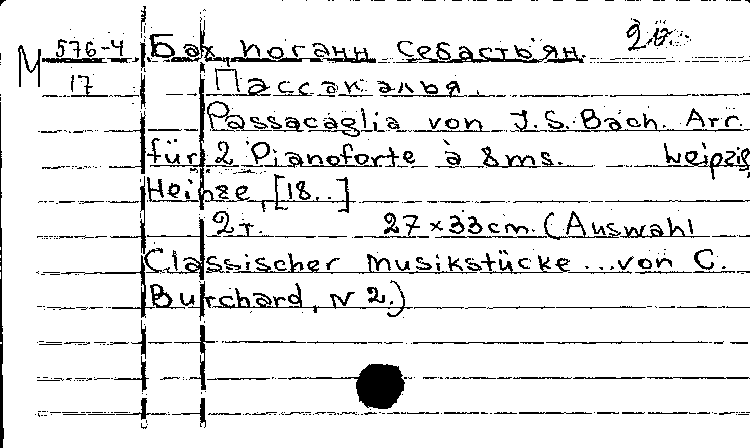 М 576-4 Бах, Иоганн Себастьян.
17 Пассакалья.
Passacaglia von J. S. Bach. Arr.
für 2 Pianoforte à 8 ms. Leipzig,
Heinze, [18..]
2 т. 27×33 cm. (Auswahl
Classischer Musikstücke ... von C.
Burchard, N 2.)